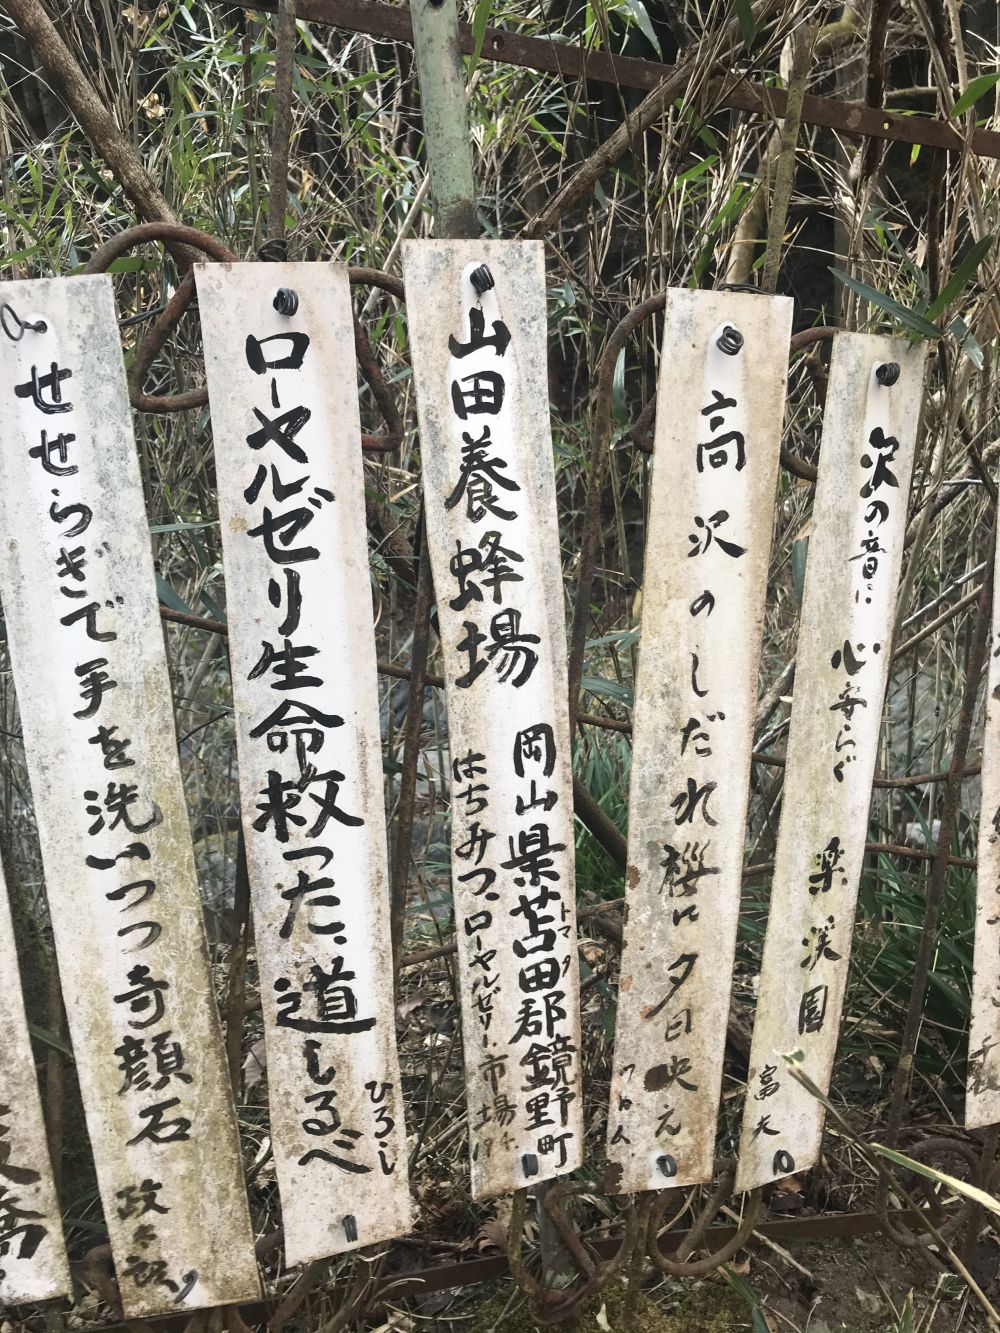 沢の音に 心安らぐ 楽渓園 富夫
高沢のしだれ桜に夕日映え
山田養蜂場
岡山県苫田郡鏡野町
トマタ
はちみつ、ローヤルゼリー市場
ローヤルゼリ生命救った、道しるべ
ひろし
せせらぎで手を洗いつつ奇顔石